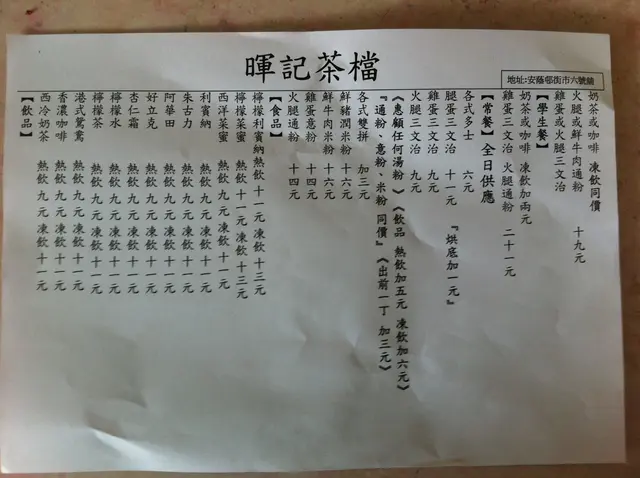 暉記茶檔
地址:安蔭邨街市六號舖
【飲品】
西冷奶茶 熱飲 九元 凍飲 十一元
香濃咖啡 熱飲 九元 凍飲 十一元
港式鴛鴦 熱飲 九元 凍飲 十一元
檸檬茶 熱飲 九元 凍飲 十一元
檸檬水 熱飲 九元 凍飲 十一元
杏仁霜 熱飲 九元 凍飲 十一元
好立克 熱飲 九元 凍飲 十一元
阿華田 熱飲 九元 凍飲 十一元
朱古力 熱飲 九元 凍飲 十一元
利賓納 熱飲 九元 凍飲 十一元
西洋菜蜜 熱飲 九元 凍飲 十一元
檸檬菜蜜 熱飲 十一元 凍飲 十三元
檸檬利賓納熱飲 十一元 凍飲 十三元
【食品】
火腿通粉 十四元
雞蛋意粉 十四元
鮮牛肉米粉 十六元
鮮豬潤米粉 十六元
各式雙拼 加三元
『通粉、意粉、米粉 同價』《出前一丁 加三元》
《惠顧任何湯粉》《飲品 熱飲加五元 凍飲加六元》
火腿三文治 九元
雞蛋三文治 九元
腿蛋三文治 十一元 『烘底加一元』
各式多士 六元
【常餐】全日供應
雞蛋三文治 火腿通粉 二十一元
奶茶或咖啡 凍飲加兩元
【學生餐】
雞蛋或火腿三文治
火腿或鮮牛肉通粉 十九元
奶茶或咖啡 凍飲同價